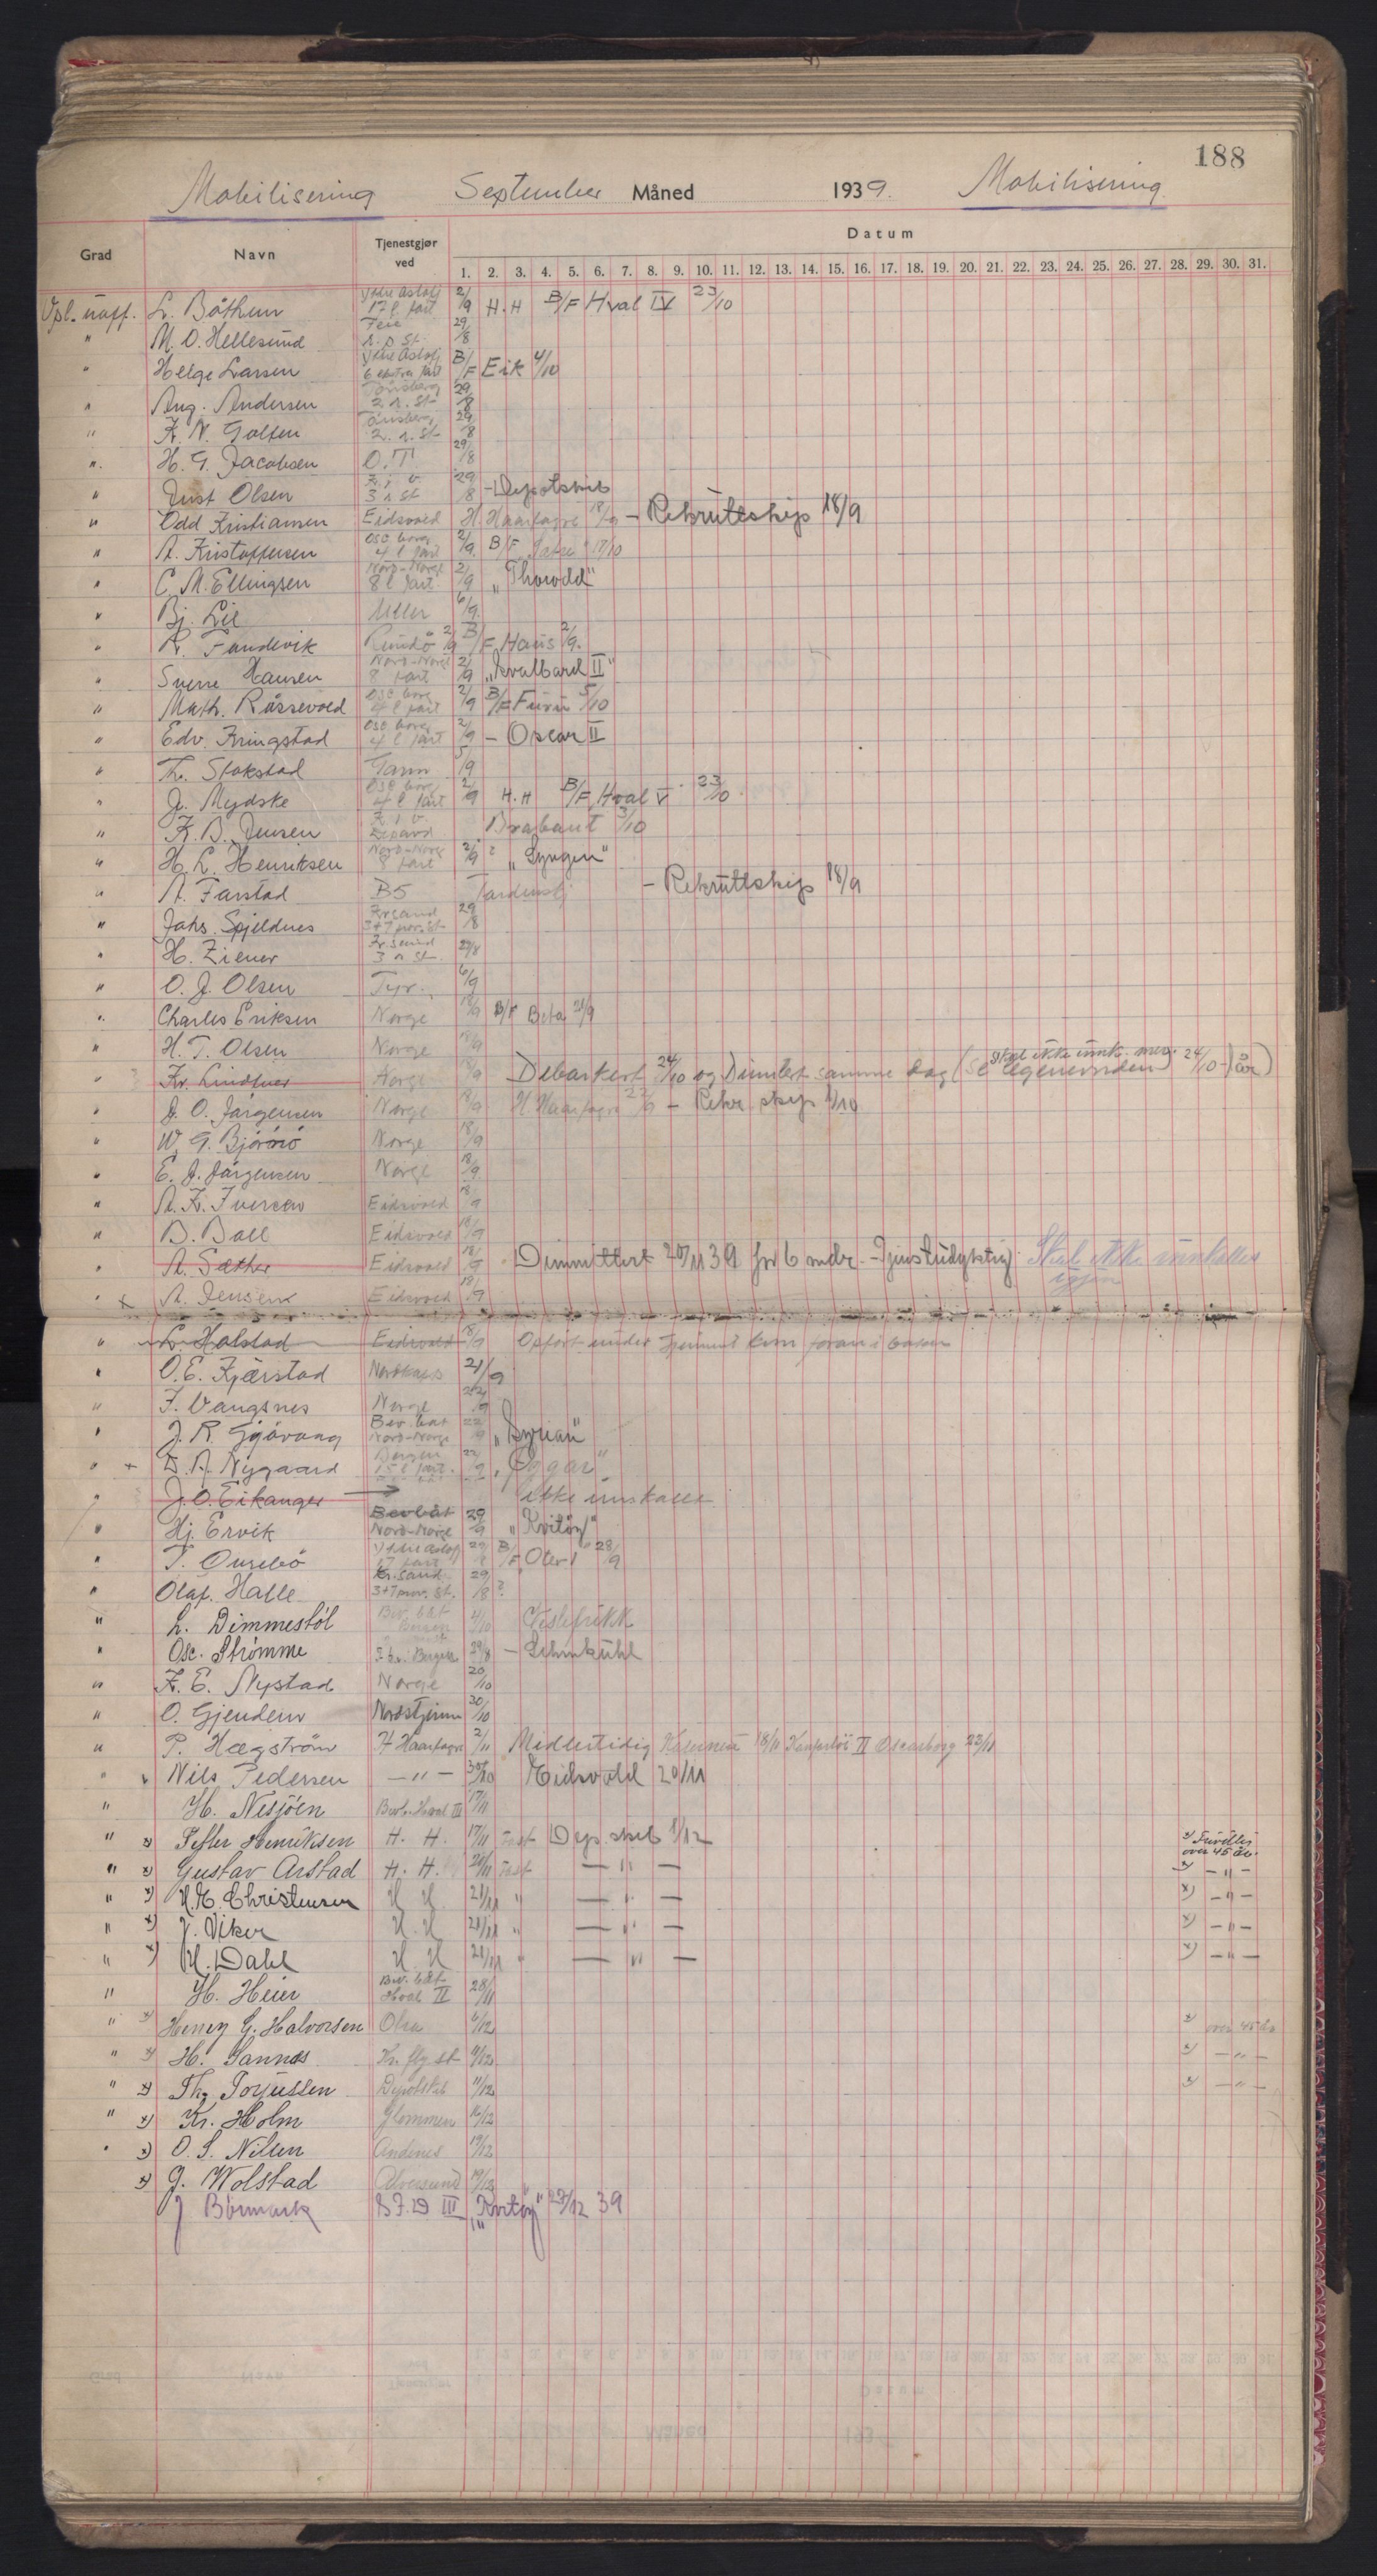 188
Mobilisering September Måned 1939. Mobilisering
Grad Navn Tjenestgjør ved Datum
1. 2. 3. 4. 5. 6. 7. 8. 9. 10. 11. 12. 13. 14. 15. 16. 17. 18. 19. 20. 21. 22. 23. 24. 25. 26. 27. 28. 29. 30. 31.
Vpl. uoff. L. Båthun Ytre Oslofj 17 l part 2/9 H.H B/F Hval IV 23/10
" M. O. Hellesund Teie r. o St. 29/8
" Helge Larsen Ytre Oslofj 6 ekstra part B/F Eik 4/10
" Aug. Andersen Tönsberg 2. r. St 29/8
" K. N. Golten Tönsberg 2. r. St 29/8
" H. G. Jacobsen O.T 29/8
" Just Olsen 3 r st 29/8 - Depotskib
" Odd Kristiansen Eidsvold H. Haarfagre 18/9 - Rekrutskip 18/9
" A. Kristoffersen Osc borg 4 l part 2/9 B/F 17/10
" C. M. Ellingsen Nord-Norge 8 l part 2/9 "Thorodd"
" Bj. Lie Uller 6/9.
" R. Tandevik Rundö 2/9 B/F Haus 2/9.
" Sverre Hansen Nord-Norge 8 part 2/9 "Svalbard II"
" Math. Råssevold Osc borg 4 l part 2/9 B/F Furu 5/10
" Edv. Kringstad Osc borg 4 l part 2/9 - Oscar II
" Th. Stokstad Garm 5/9
" J. Mydske Osc borg 4 l part 2/9 H.H B/F Hval V 23/10
" K. B. Jensen K.j.v. Brabant 3/10
" H. L. Henriksen Nord-Norge 8 part 2/9 ? "Lyngen"
" A. Farstad B5 - Rekruttskip 18/9
" Jahs. Spjeldnes Kr.sand 3+7 prov. St 29/8
" H. Ziener Kr. sund 3 r st 29/8
" O. J. Olsen Tyr. 6/9
" Charles Eriksen Norge 18/9 B/F Beta 21/9
" H. T. Olsen Norge 18/9
" Kr. Lindtner Norge 18/9 Debarkert 24/10 og Dimitert samme dag (se legenevnden) Skal ikke innk. mer. 24/10 - 1 år)
" J. O. Jørgensen Norge 18/9 H Haarfagre - Rekr skip 1/10
" W. G. Bjørnö Norge 18/9
" E. J. Jørgensen Norge 18/9
" A. K. Iversen Eidsvold 18/9
" B. Ball Eidsvold 18/9
" A. Sæther Eidsvold 18/9 Dimmittert 20/11 39 for 6 mdr. - Tjenstudyktig. Skal ikke innkalles igjen
" x A. Jensen Eidsvold 18/9
" L. Halstad Eidsvold 18/9 Opført under foran i boken
" O. E. Kjærstad Nordkapp 21/9
" J. Vangsnes Norge
" J. R. Gjøvang Bev. båt Nord-Norge 22/9 "Syrian"
" + D. A. Nygaard Bergen 15 l part. 22/9 "Ggar"
" J. O. Eikanger → ikke innkalle
" Hj. Ervik Bevbåt Nord-Norge 29/9 "Kvitöy"
" T. Ourebö Ytre Oslofj 17 part B/F "Oter I" 28/9
" Olaf. Halle Kr. sand 3+7 prov. St. 29/8 ?
" L. Dimmestöl Bev. båt Bergen 4/10 Veslefrikk
" Osc. Strømme Bergen 29/8 - Lehmkuhl
" K. E. Nystad Norge 20/10
" O. Gjendem Nordstjernen 30/10
" P. Hægström H Haarfagre 2/11 Midlertidig 18/11 II Oscarsborg 22/11
" Nils Pedersen - " - 30/10 Eidsvold 20/11
" H. Nesjöen Bevb. Hval III 17/11
" x) Peder Henriksen H. H. 17/11 Fast Dep. skib 1/12 x) Frivillig over 45 år.
" x) Gustav Arstad H. H. 20/11 Fast - " - x) - " -
" x) H. E. Christensen H H 21/11 " - " - x) - " -
" x) J. Viker H. H 21/11 " - " - x) - " -
" x) H. Dahl H. H 21/11 " - " - x) - " -
" H. Heier Bev. båt Hval II 28/11
" x) Henry G. Halvorsen Olra 6/12 x) over 45 år
" x) H. Sannæs Kr. fly. st 9/12 x) - " -
" x) Th. Torjussen Depotskib 11/12 x) - " -
" x) Kr. Holm Glommen 16/12
" x) O. S. Nilsen Andenes 19/12
x) J. Wolstad Alversund 19/12
J Börmark S.F. 29 III "Kvitöy" 27/12 39